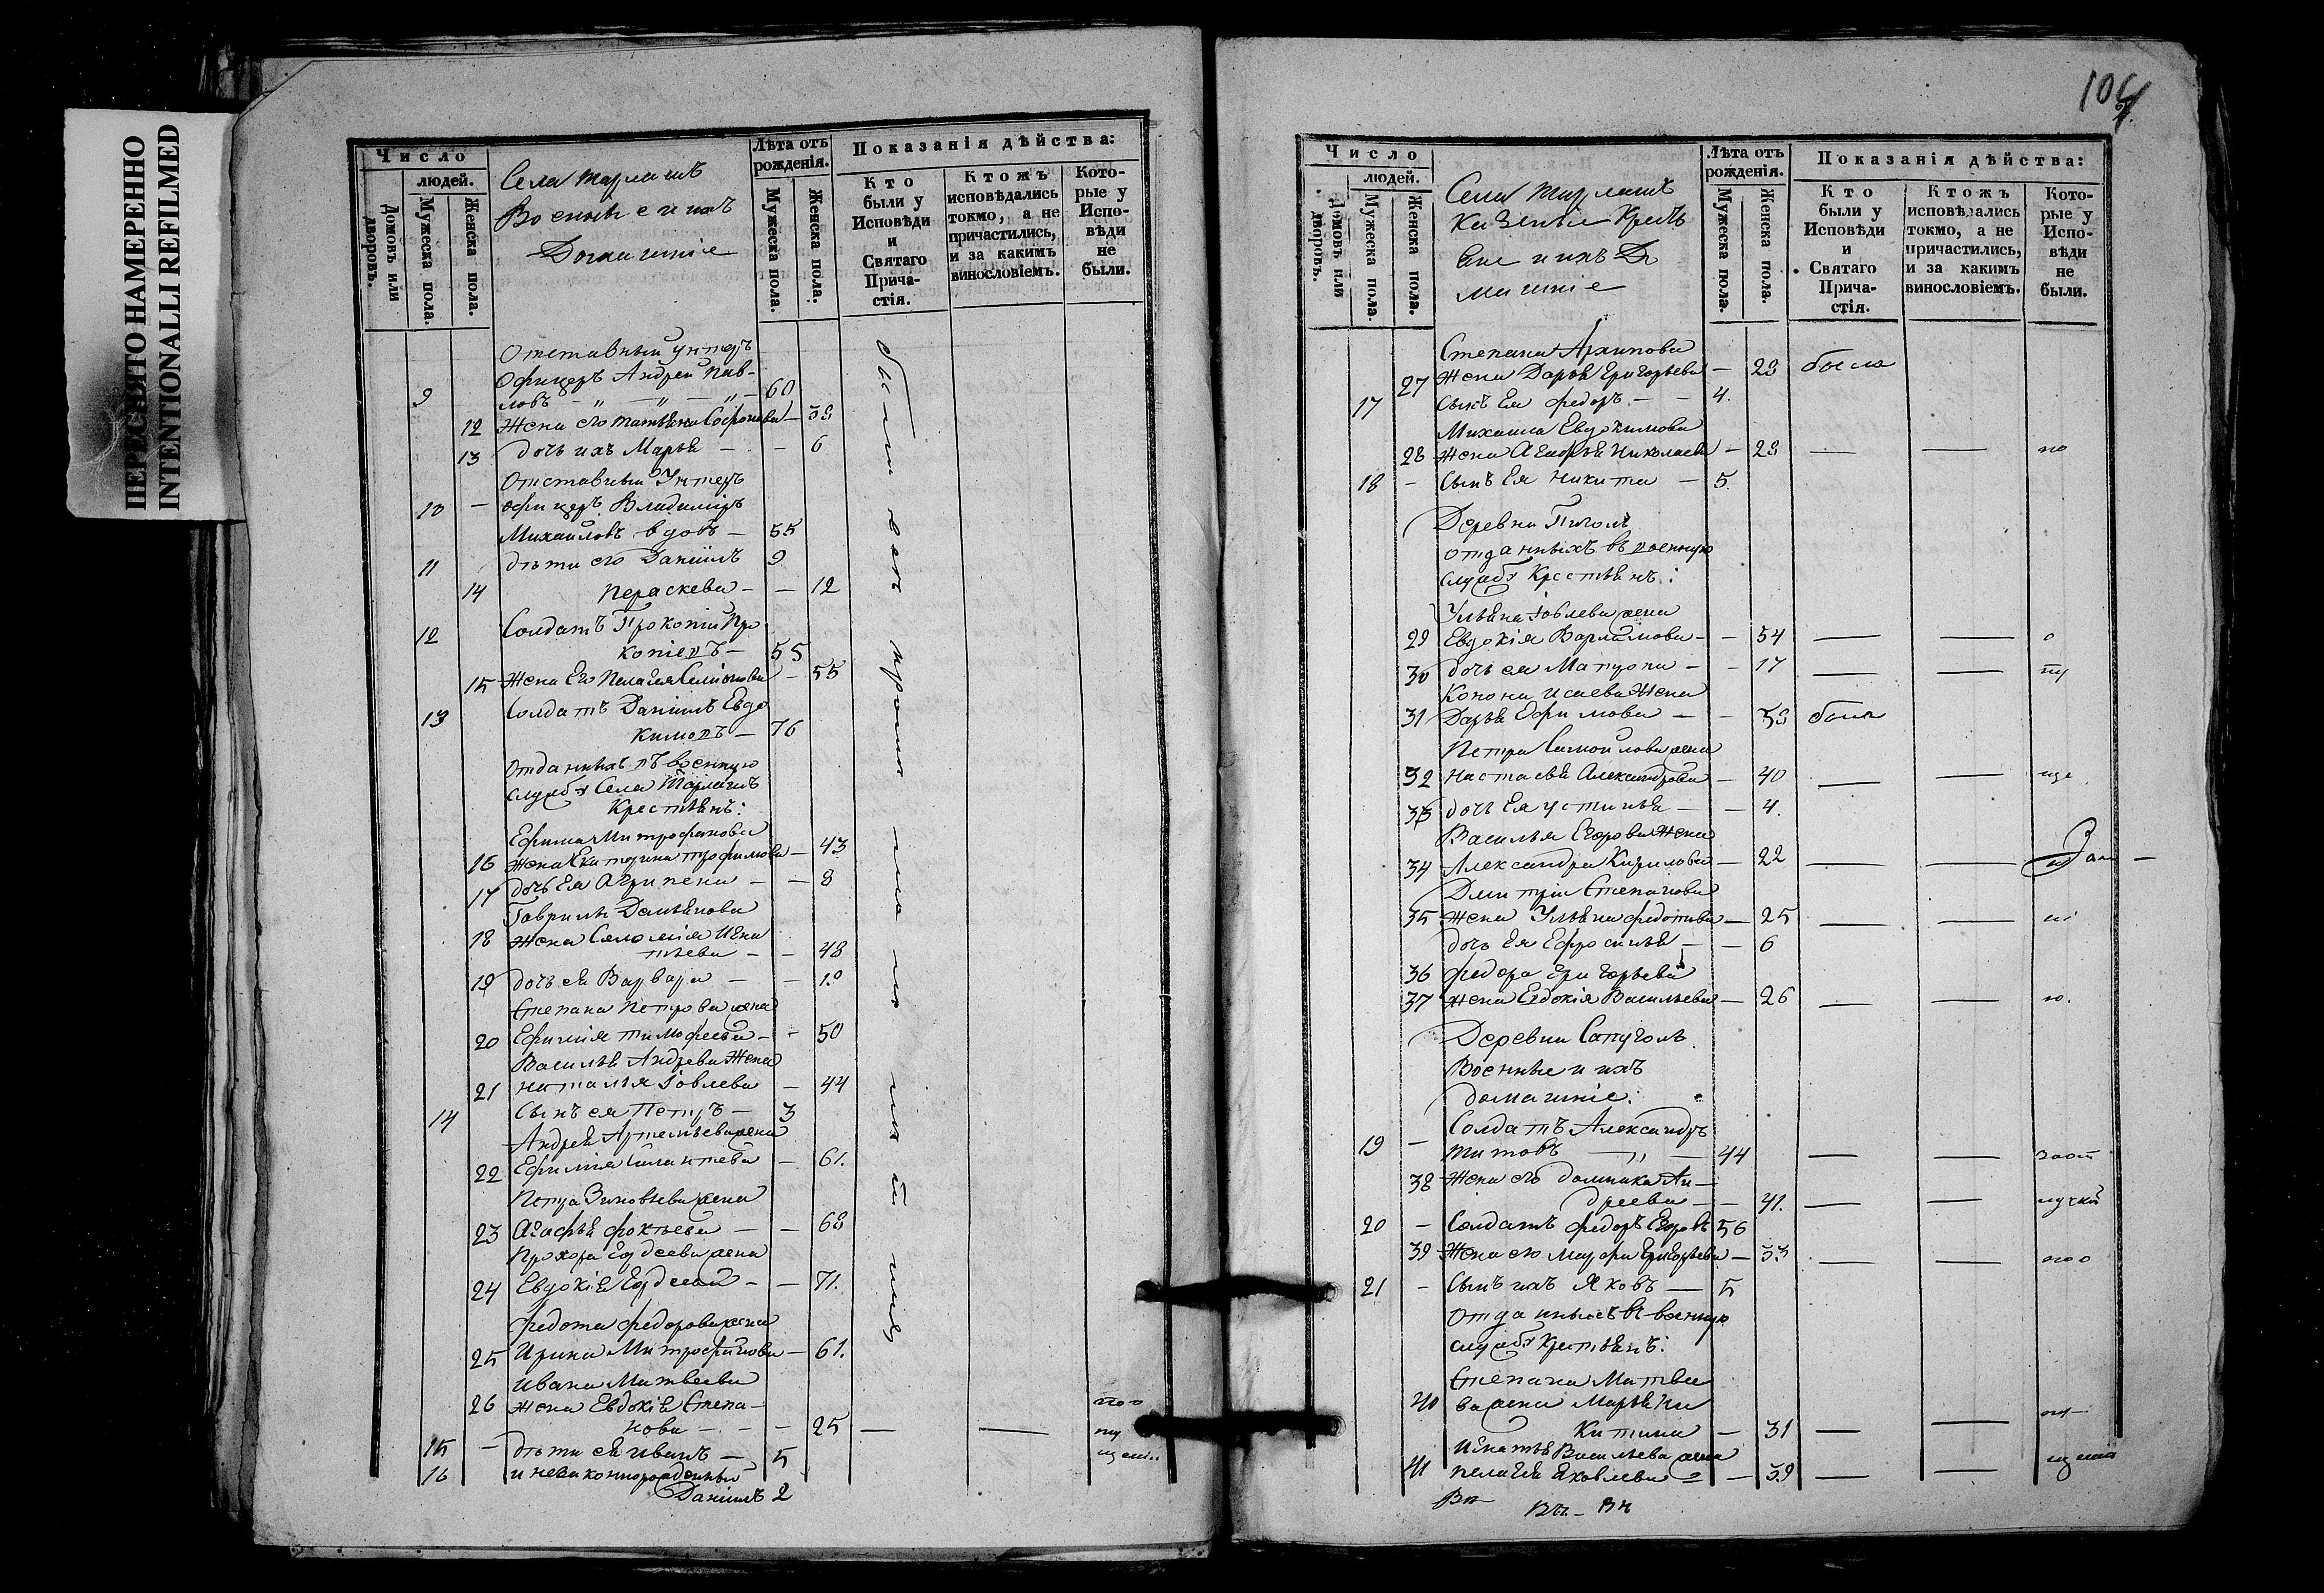 ПЕРЕСНЯТО НАМЕРЕННО
INTENTIONALLI REFILMED
Число
людей.
Домовъ или дворовъ.
Мужеска пола.
Женска пола.
Села
Военные и ихъ
Домашніе
Лѣта отъ рожденія.
Мужеска пола.
Женска пола.
Показанія дѣйства:
Кто были у Исповѣди и Святаго Причастія.
Ктожъ исповѣдались токмо, а не причастились, и за какимъ винословіемъ.
Которые у Исповѣди не были.
Отставный унтеръ
9 Офицеръ Андрей Пав-
ловъ — 60
12 Жена его Татьяна Софонова — 38
13 дочь ихъ Марья — — 6
Отставный Унтеръ
10 — офицеръ Владиміръ
Михайловъ вдовъ — 55
11 дѣти его Даніилъ 9
14 Параскева — — 12
12 Солдатъ Прокопій Про
копіевъ — 55
15 Жена Его Пелагея Симіонова — 55
13 Солдатъ Даніилъ Евдо
кимовъ — 76
Отданныхъ въ военную
службу Села
Крестьянъ:
Ефима Митрофанова
16 Жена Екатерина Трофимова — 43
17 дочь Ея Агрипена — — 8
Гаврилы Демьянова
18 жена Саломія Игна
тьева — — 48
19 дочь ея Варвара — — 10
Степана Петрова жена
20 Ефимія Тимофеева — 50
Василья Андреева Жена
21 Наталья Іовлева — 44
14 Сынъ ея Петръ — 3
Андрея Артемьева жена
22 Ефимія — 61.
Петра Зиновьева жена
23 Агафья Фоктьева — — 68
Прохора жена
24 Евдокія — — 71.
Федота Федорова жена
25 Ирина Митрофанова — 61.
Ивана Матвеева
26 жена Евдокія Степа-
нова — — — 25 — —
15 — дѣти ея Иванъ — 5
16 и незаконнорожденный
Даніилъ 2
104
Число
людей.
Домовъ или дворовъ.
Мужеска пола.
Женска пола.
Села
Казенные Кресть
яне и ихъ До
машніе
Лѣта отъ рожденія.
Мужеска пола.
Женска пола.
Показанія дѣйства:
Кто были у Исповѣди и Святаго Причастія.
Ктожъ исповѣдались токмо, а не причастились, и за какимъ винословіемъ.
Которые у Исповѣди не были.
Степана Архипова
27 Жена Дарья Григорьева — 28 была
17 Сынъ Ея Федоръ — — 4.
Михаила Евдокимова
28 Жена Николаева — 28 — — по
18 — Сынъ Ея Никита — 5.
Деревни
отданныхъ въ военную
службу Крестьянъ:
Ульяна Іовлева жена
29 Евдокія Варламова — — 54 — —
30 дочь ея Матрона — — 17 — —
Конона Исаева Жена
31 Дарья Ефимова — — 38 была
Петра Самойлова жена
32 Настасья Александрова — 40 — —
33 дочь Ея Устинья — — 4.
Василья Егорова Жена
34 Александра Кирилова — 22 — —
Дмитрія Степанова
35 Жена Ульяна Федотова — 25 — —
дочь Ея Ефросинья — — 6
36 Федора Григорьева
37 жена Евдокія Васильева — 26 — —
Деревни
Военные и ихъ
домашніе:
19 — Солдатъ Александръ
Титовъ — „ — 44 — —
38 Жена его Домника Ан-
дреева — — 41. — —
20 — Солдатъ Федоръ Егоровъ 56
39 Жена его Марфа Григорьева — 53 — —
21 — Сынъ ихъ Яковъ — 5
Отданныхъ въ военную
службу Крестьянъ:
Степана Матвее
40 ва жена Марья Ни
китина — 31 — —
Игнатья Васильева жена
41 Пелагея Яковлева — 59 — —